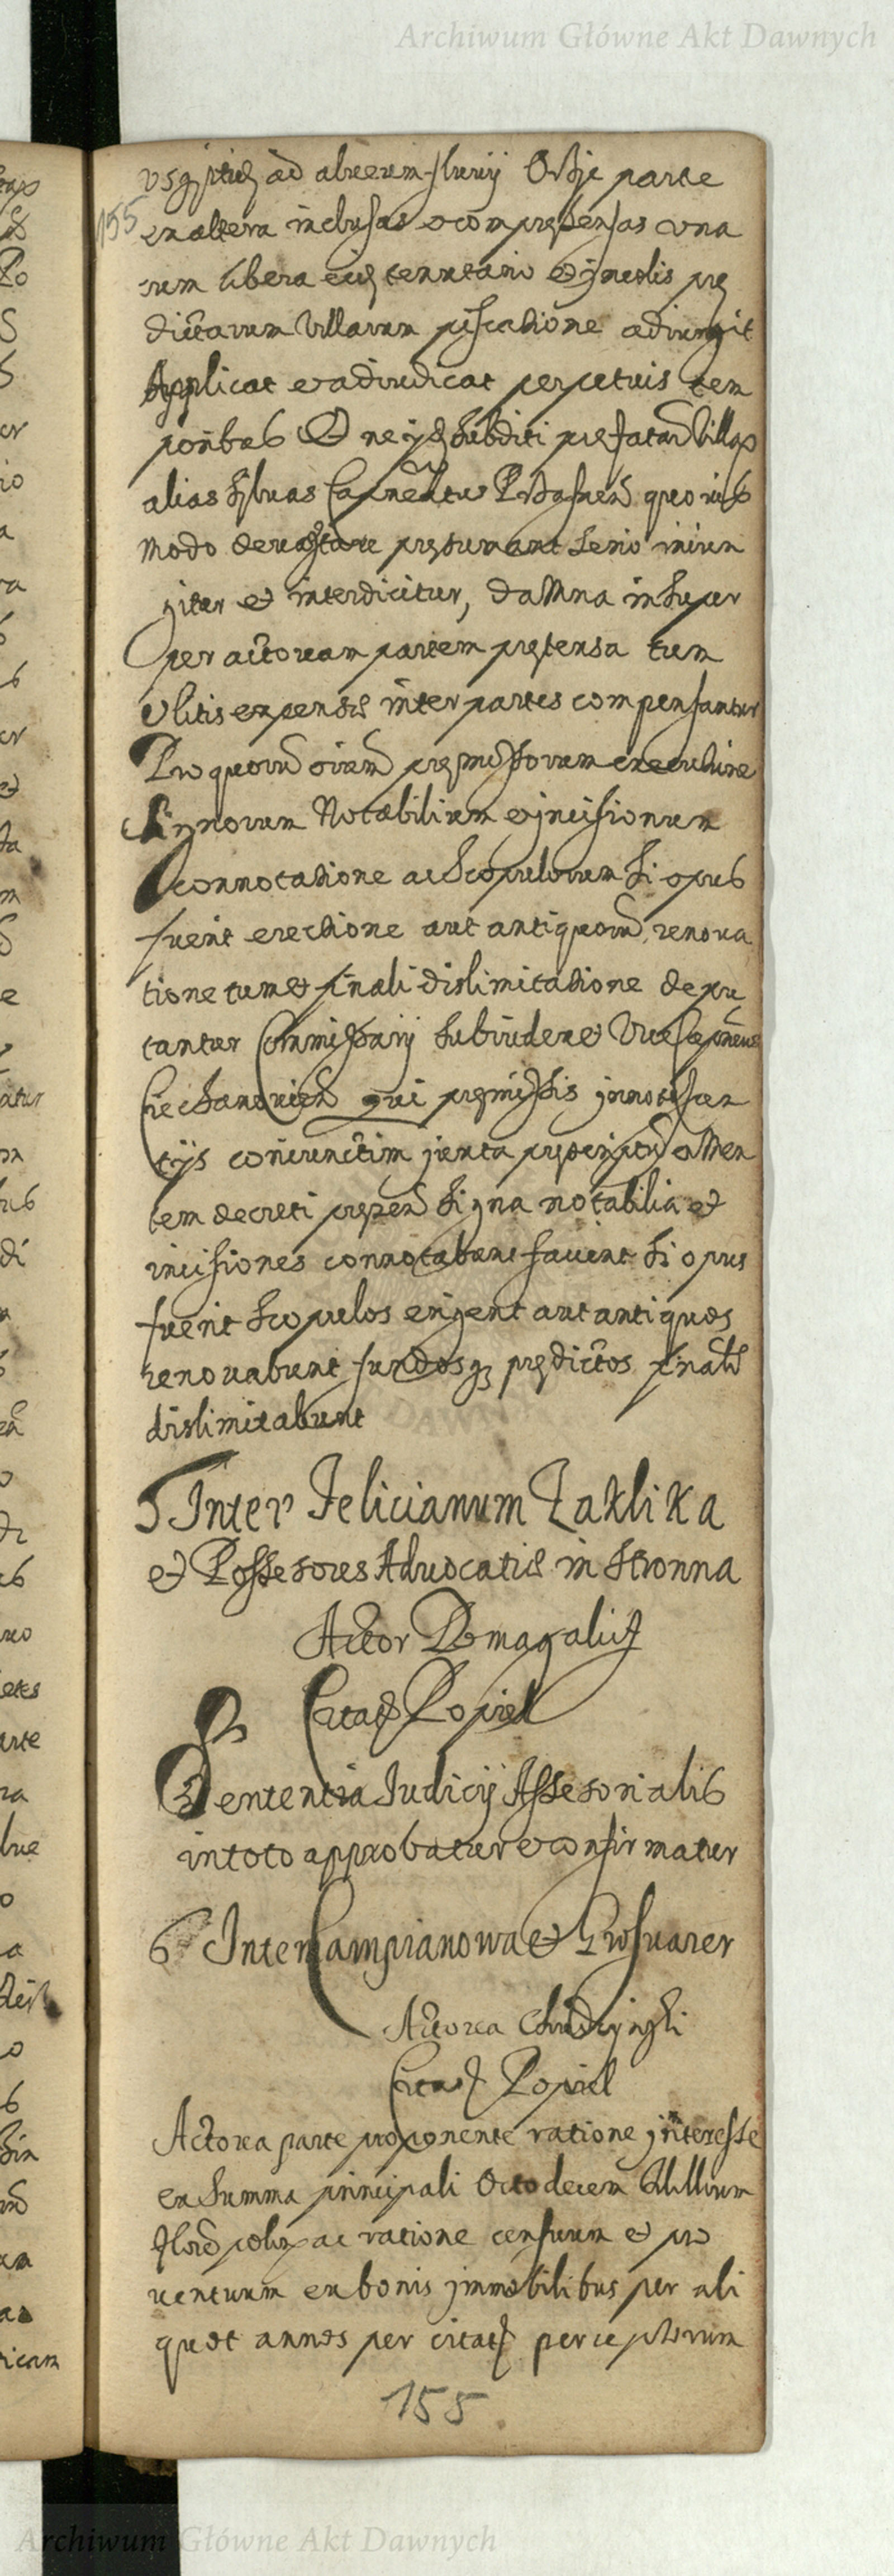 Archiwum Główne Akt Dawnych
ad alveum fluvij Orzyc parte
155
ex altera inclusas et comprehensas una
cum libera eius tenutario et incolis
dictarum Villarum piscatione adiungit
Applicat et adiudicat perpetuis tem
poribus Et ne subditi Villar
alias sylvas quovis
modo devastare pręsumant serio iniun
gitur et interdicitur, damna insuper
per actoream partem prętensa cum
Litis expensis inter partes compensantur
Pro quorum omnium pręmissorum executione
Signorum Notabilium et incisionum
connotatione ac Scopulorum si opus
fuerit erectione aut antiquorum renova
tione tum et finali dislimitatione depu
tantur Commissarij Subiudex et Vice
qui pręmissis innotescen
tijs coniunctim iuxta et Men
tem decreti signa notabilia et
incisiones connotabunt facient si opus
fuerit Scopulos erigent aut antiquos
renovabunt fundosq prędictos
dislimitabunt
5 Inter Felicianum Zaklika
et Possessores Advocatię in Stronna
Actor Domagalicz
Citat Popiel
Sententia Iudicij Assessorialis
in toto approbatur et confirmatur
6 Inter Campianowa et
Actorea
Citat Popiel
Actorea parte proponente ratione interesse
ex Summa principali Octodecem Millium
ac ratione censuum et pro
ventuum ex bonis immobilibus per ali
quot annos per citat perceptorum
155
Archiwum Główne Akt Dawnych